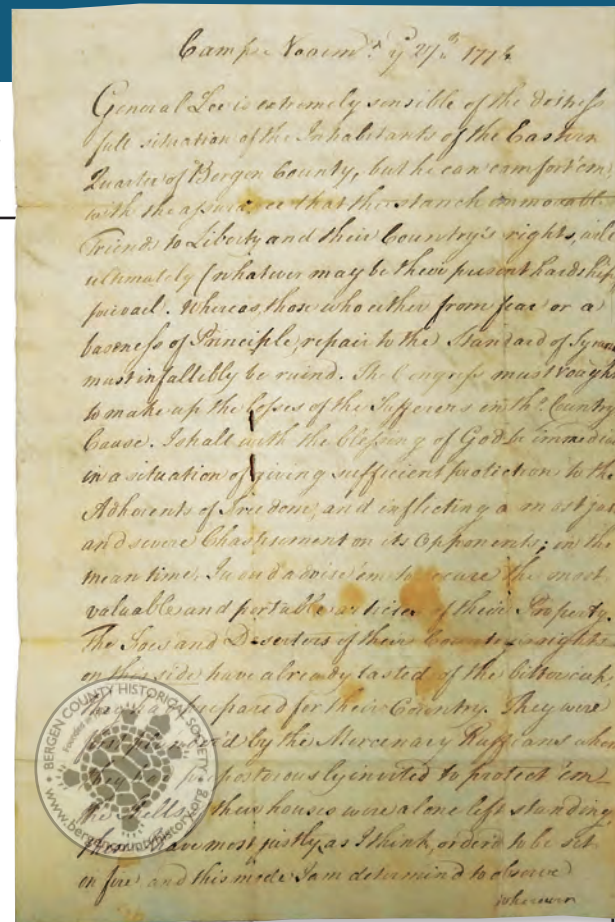 Camp Novem.r y.e 27.th 1776
General Lee is extremely sensible of the distress
full situation of the Inhabitants of the Eastern
Quarter of Bergen County, but he can comfort 'em
with the assurance that the stanch immovable
Friends to Liberty and their Country's rights, will
ultimately (whatever may be their present hardships
prevail. Whereas, those who either from fear or a
baseness of Principle, repair to the Standard of Tyranny
must infallibly be ruind. The Congress must & ought
to make up the losses of the Sufferers in th.r Country
Cause. I shall with the blessing of God be immedia
in a situation of giving sufficient protection to the
Adherents of Freedom, and inflicting a most just
and severe Chastisement on its Opponents; in the
mean time, I woud advise 'em to secure the most
valuable and portable articles of their Property.
The Foes and Deserters of their Country's rights
on this side have already tasted of the bitter cup
they had prepared for their Country. They were
plunder'd by the Mercenary Ruffians whom
they had preposterously invited to protect 'em
the Shells of their houses were alone left standing,
these I have most justly, as I think, order'd to be set
on fire, and this mode I am determind to observe
wherever
BERGEN COUNTY HISTORICAL SOCIETY
Founded in
www.bergencountyhistory.org